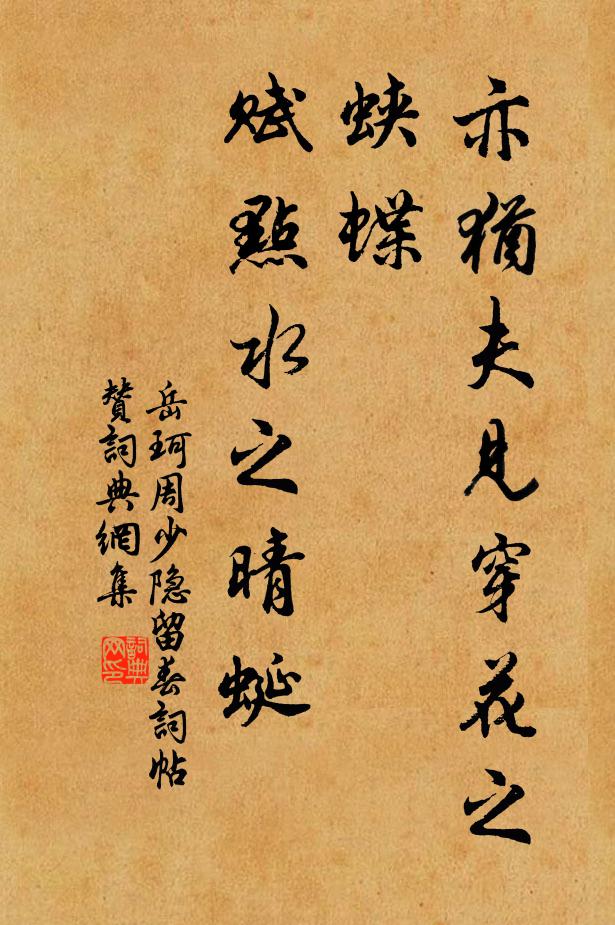 亦猶夫見穿花之
蛺蝶
賦點水之晴蜓
岳珂周少隐留春詞帖
贊詞典網集
詞典网印